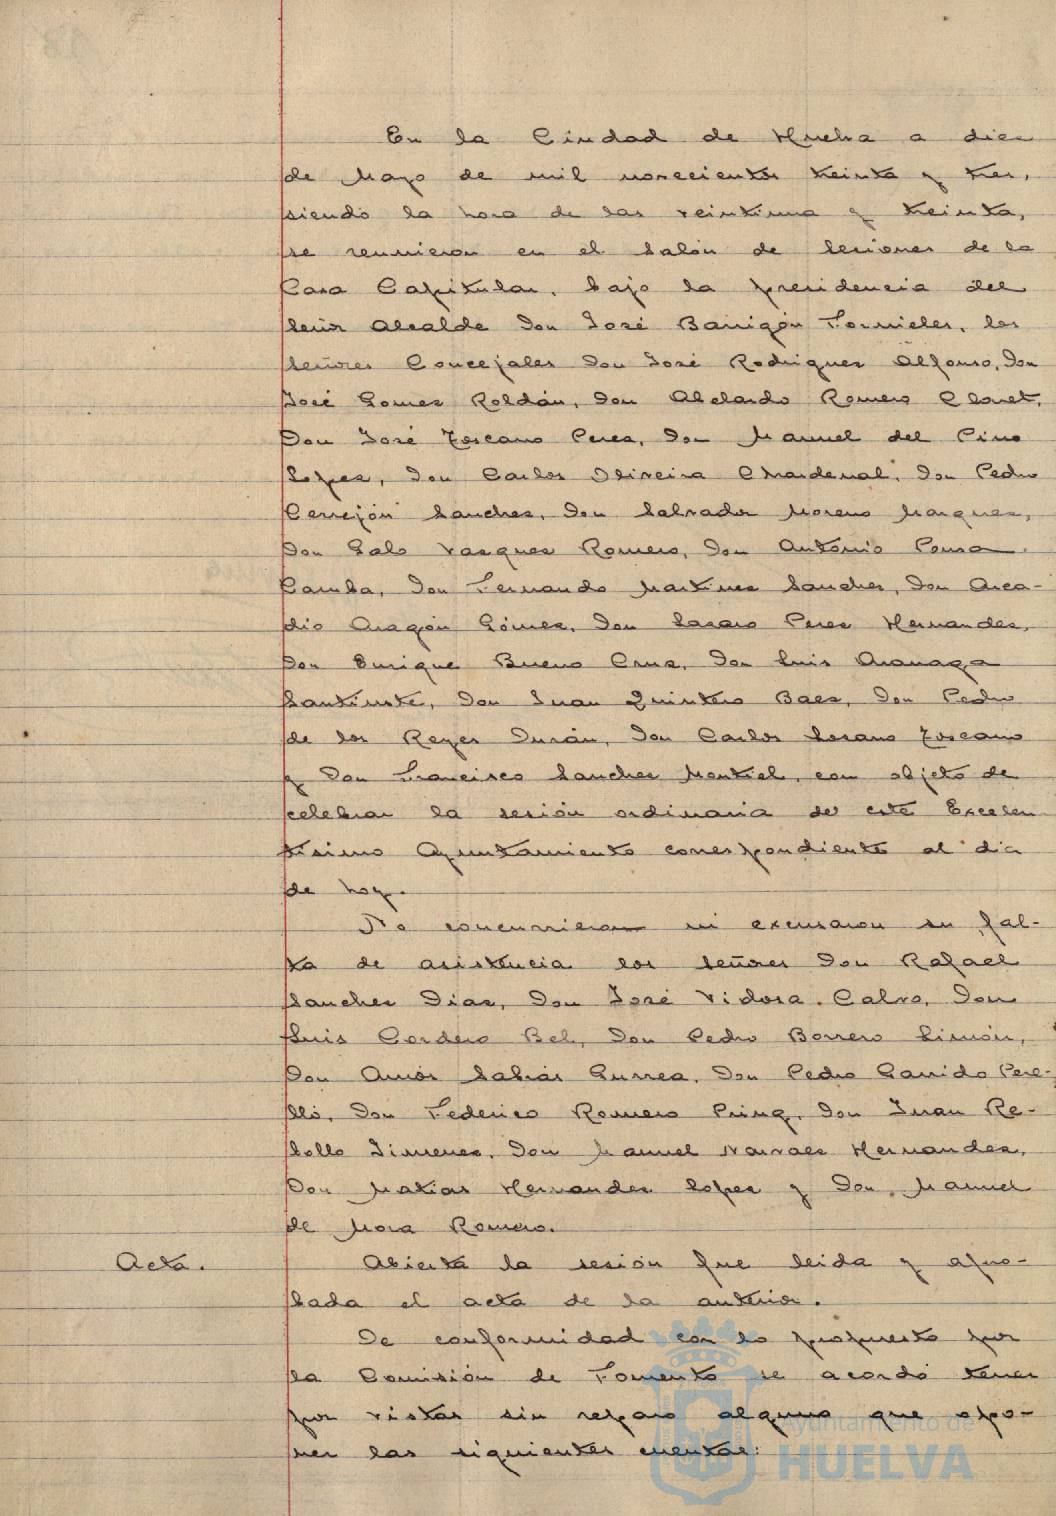 En la Ciudad de Huelva a diez
de Mayo de mil novecientos treinta y tres,
siendo la hora de las veintiuna y treinta,
se reunieron en el Salón de Sesiones de la
Casa Capitular, bajo la presidencia del
Señor Alcalde Don José Barrigón Fornieles, los
Señores Concejales Don José Rodriguez Alfonso, Don
José Gomez Roldán, Don Abelardo Romero Claret,
Don José Toscano Perez, Don Manuel del Pino
Lopez, Don Carlos Oliveira Chardenal, Don Pedro
Cerrejón Sanchez, Don Salvador Moreno Marquez,
Don Galo Vazquez Romero, Don Antonio Pousa
Camba, Don Fernando Martinez Sanchez, Don Arca-
dio Aragón Gómez, Don Lazaro Perez Hernandez,
Don Enrique Bueno Cruz, Don Luis Aranaga
Santiuste, Don Juan Quintero Baez, Don Pedro
de los Reyes Durán, Don Carlos Lozano Toscano
y Don Francisco Sanchez Montiel, con objeto de
celebrar la sesión ordinaria de este Excelen
tísimo Ayuntamiento correspondiente al dia
de hoy.
No concurrieron ni excusaron su fal-
ta de asistencia los Señores Don Rafael
Sanchez Diaz, Don José Vidosa Calvo, Don
Luis Cordero Bel, Don Pedro Borrero Limón,
Don Amós Sabrás Gurrea, Don Pedro Garrido Pere-
lló, Don Federico Romero Pring, Don Juan Re-
bollo Jimenez, Don Manuel Narvaez Hernandez,
Don Matias Hernandez Lopez y Don Manuel
de Mora Romero.
Acta.
Abierta la sesión fue leida y apro-
bada el acta de la anterior.
De conformidad con lo propuesto por
la Comisión de Fomento se acordó tener
por vistas sin reparo alguno que opo-
ner las siguientes cuentas:
Ayuntamiento de
HUELVA